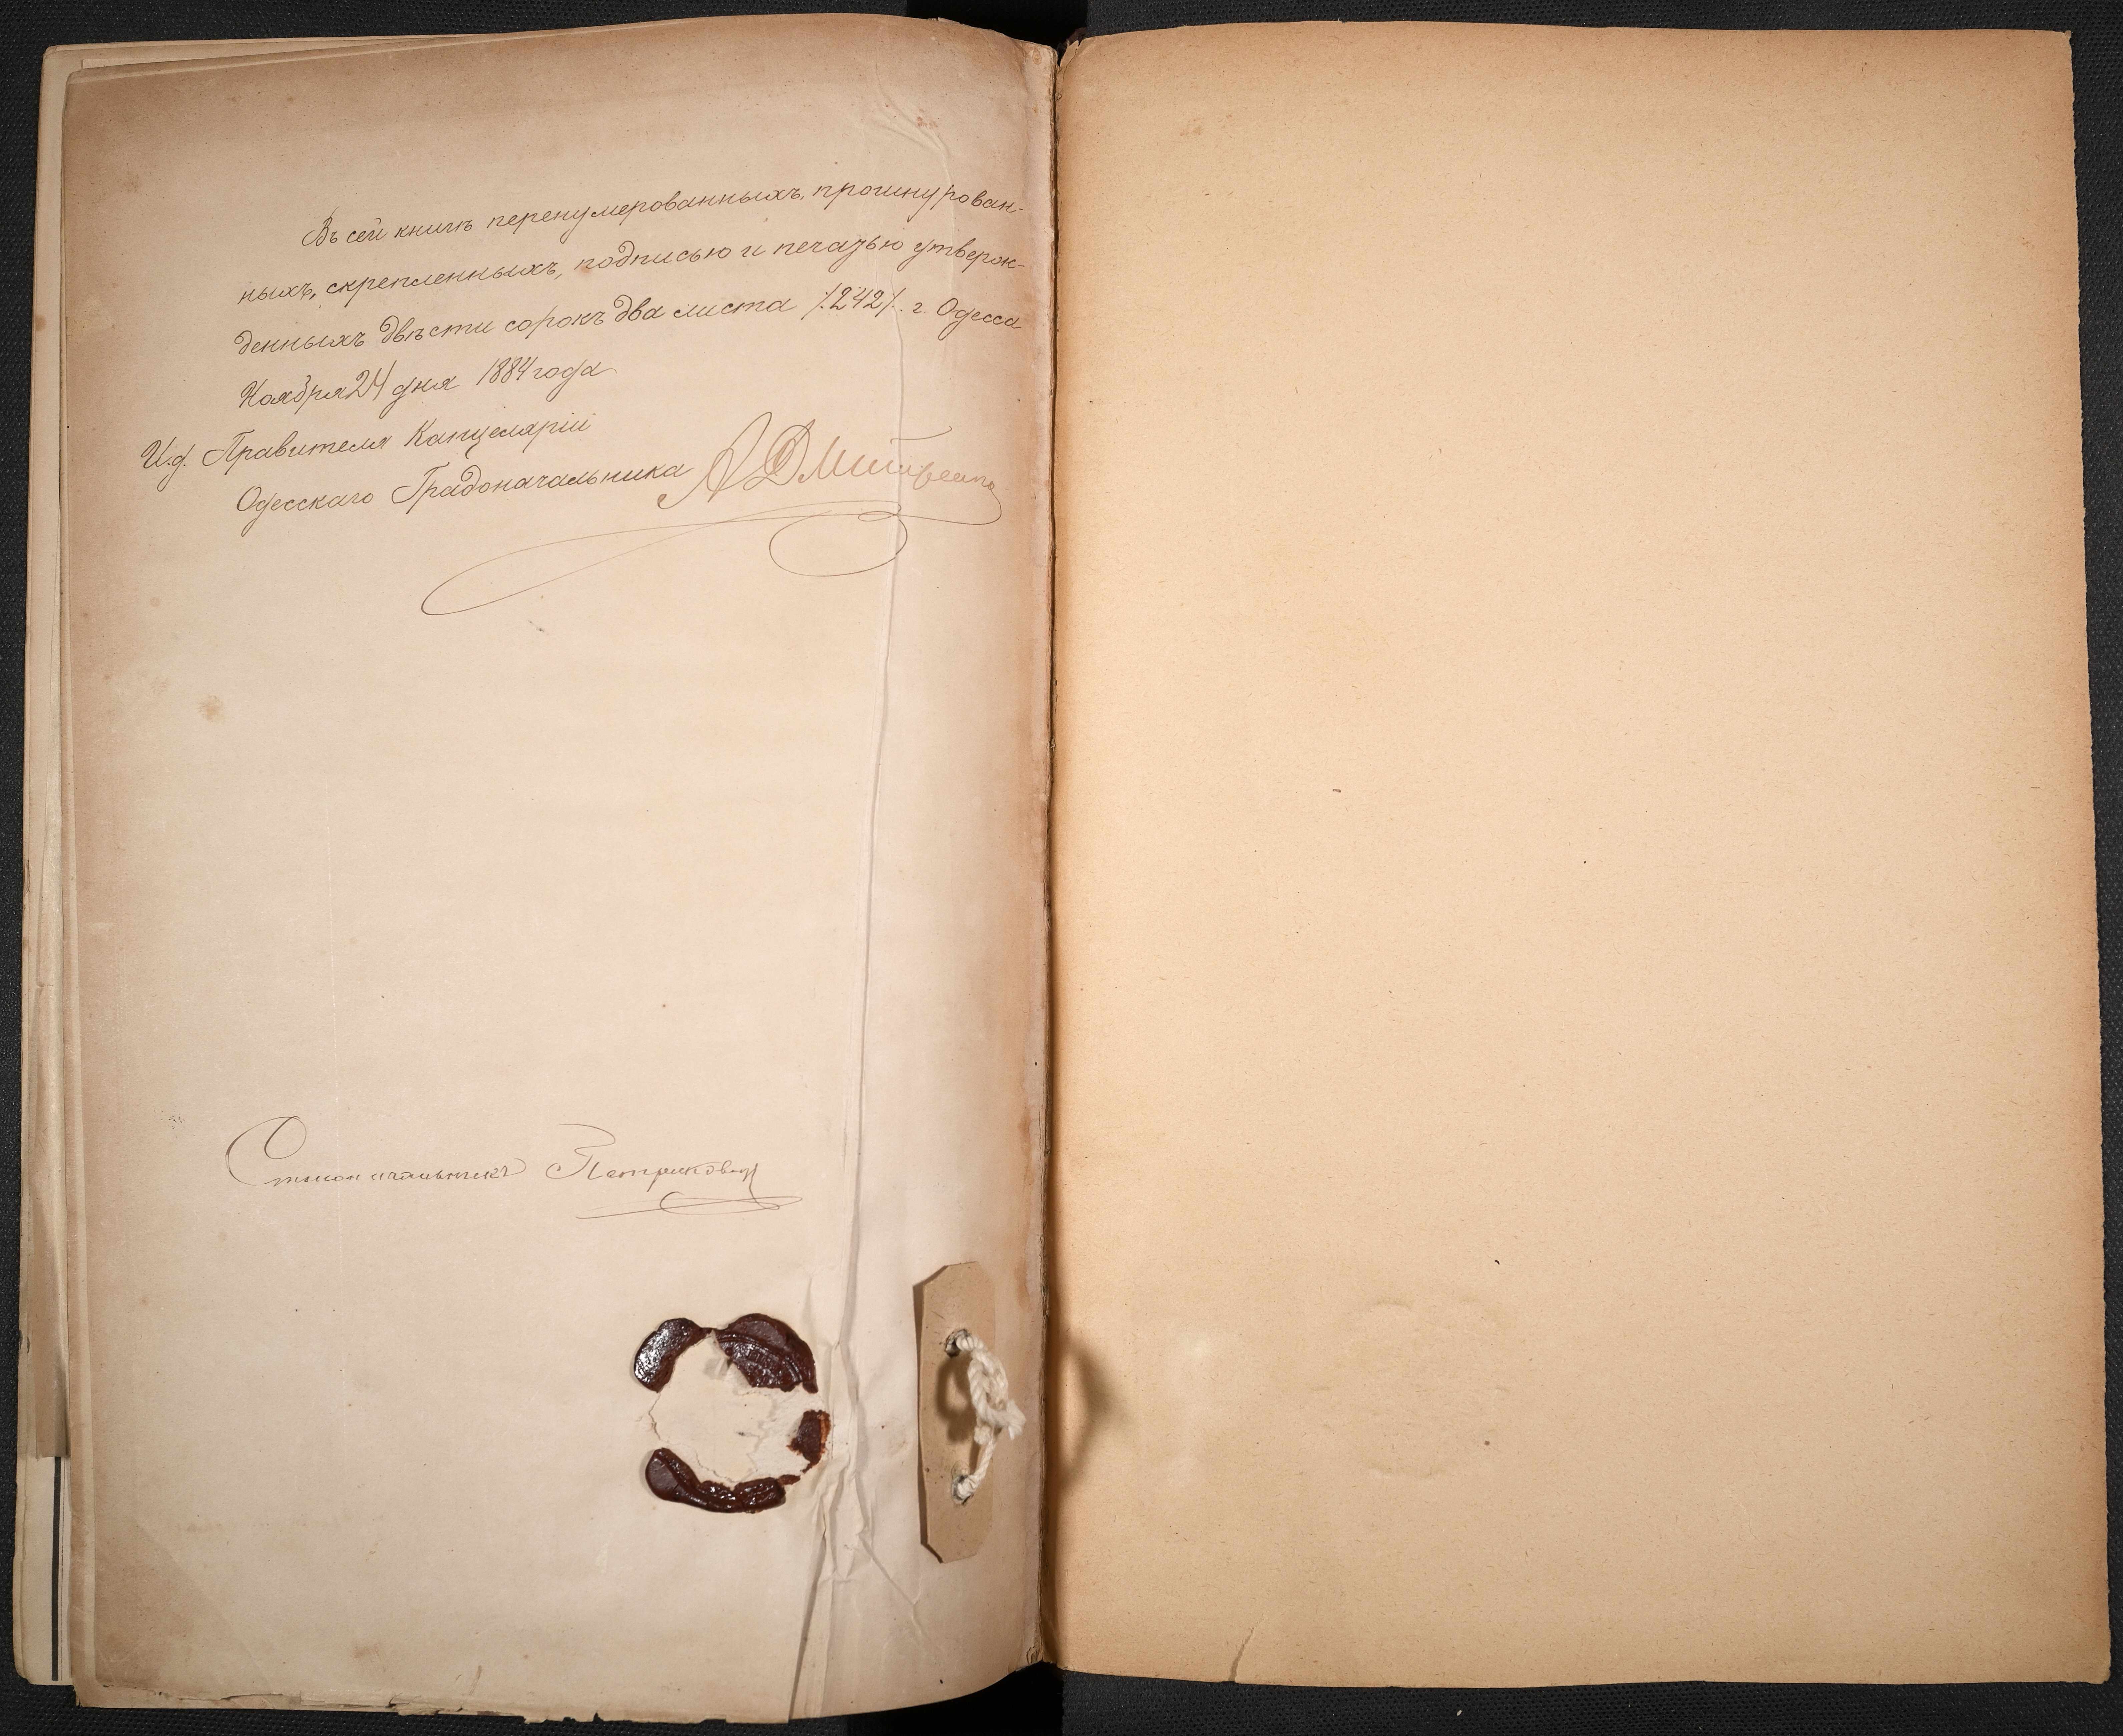 Въ сей книгѣ перенумерованныхъ, прошнурован-
ныхъ, скрепленныхъ, подписью и печатью утверж-
денныхъ двѣсти сорокъ два листа /.242/. г. Одесса
Ноября 24 дня 1884 года
И.д. Правителя Канцеляріи
Одесскаго Градоначальника
Столоначальникъ